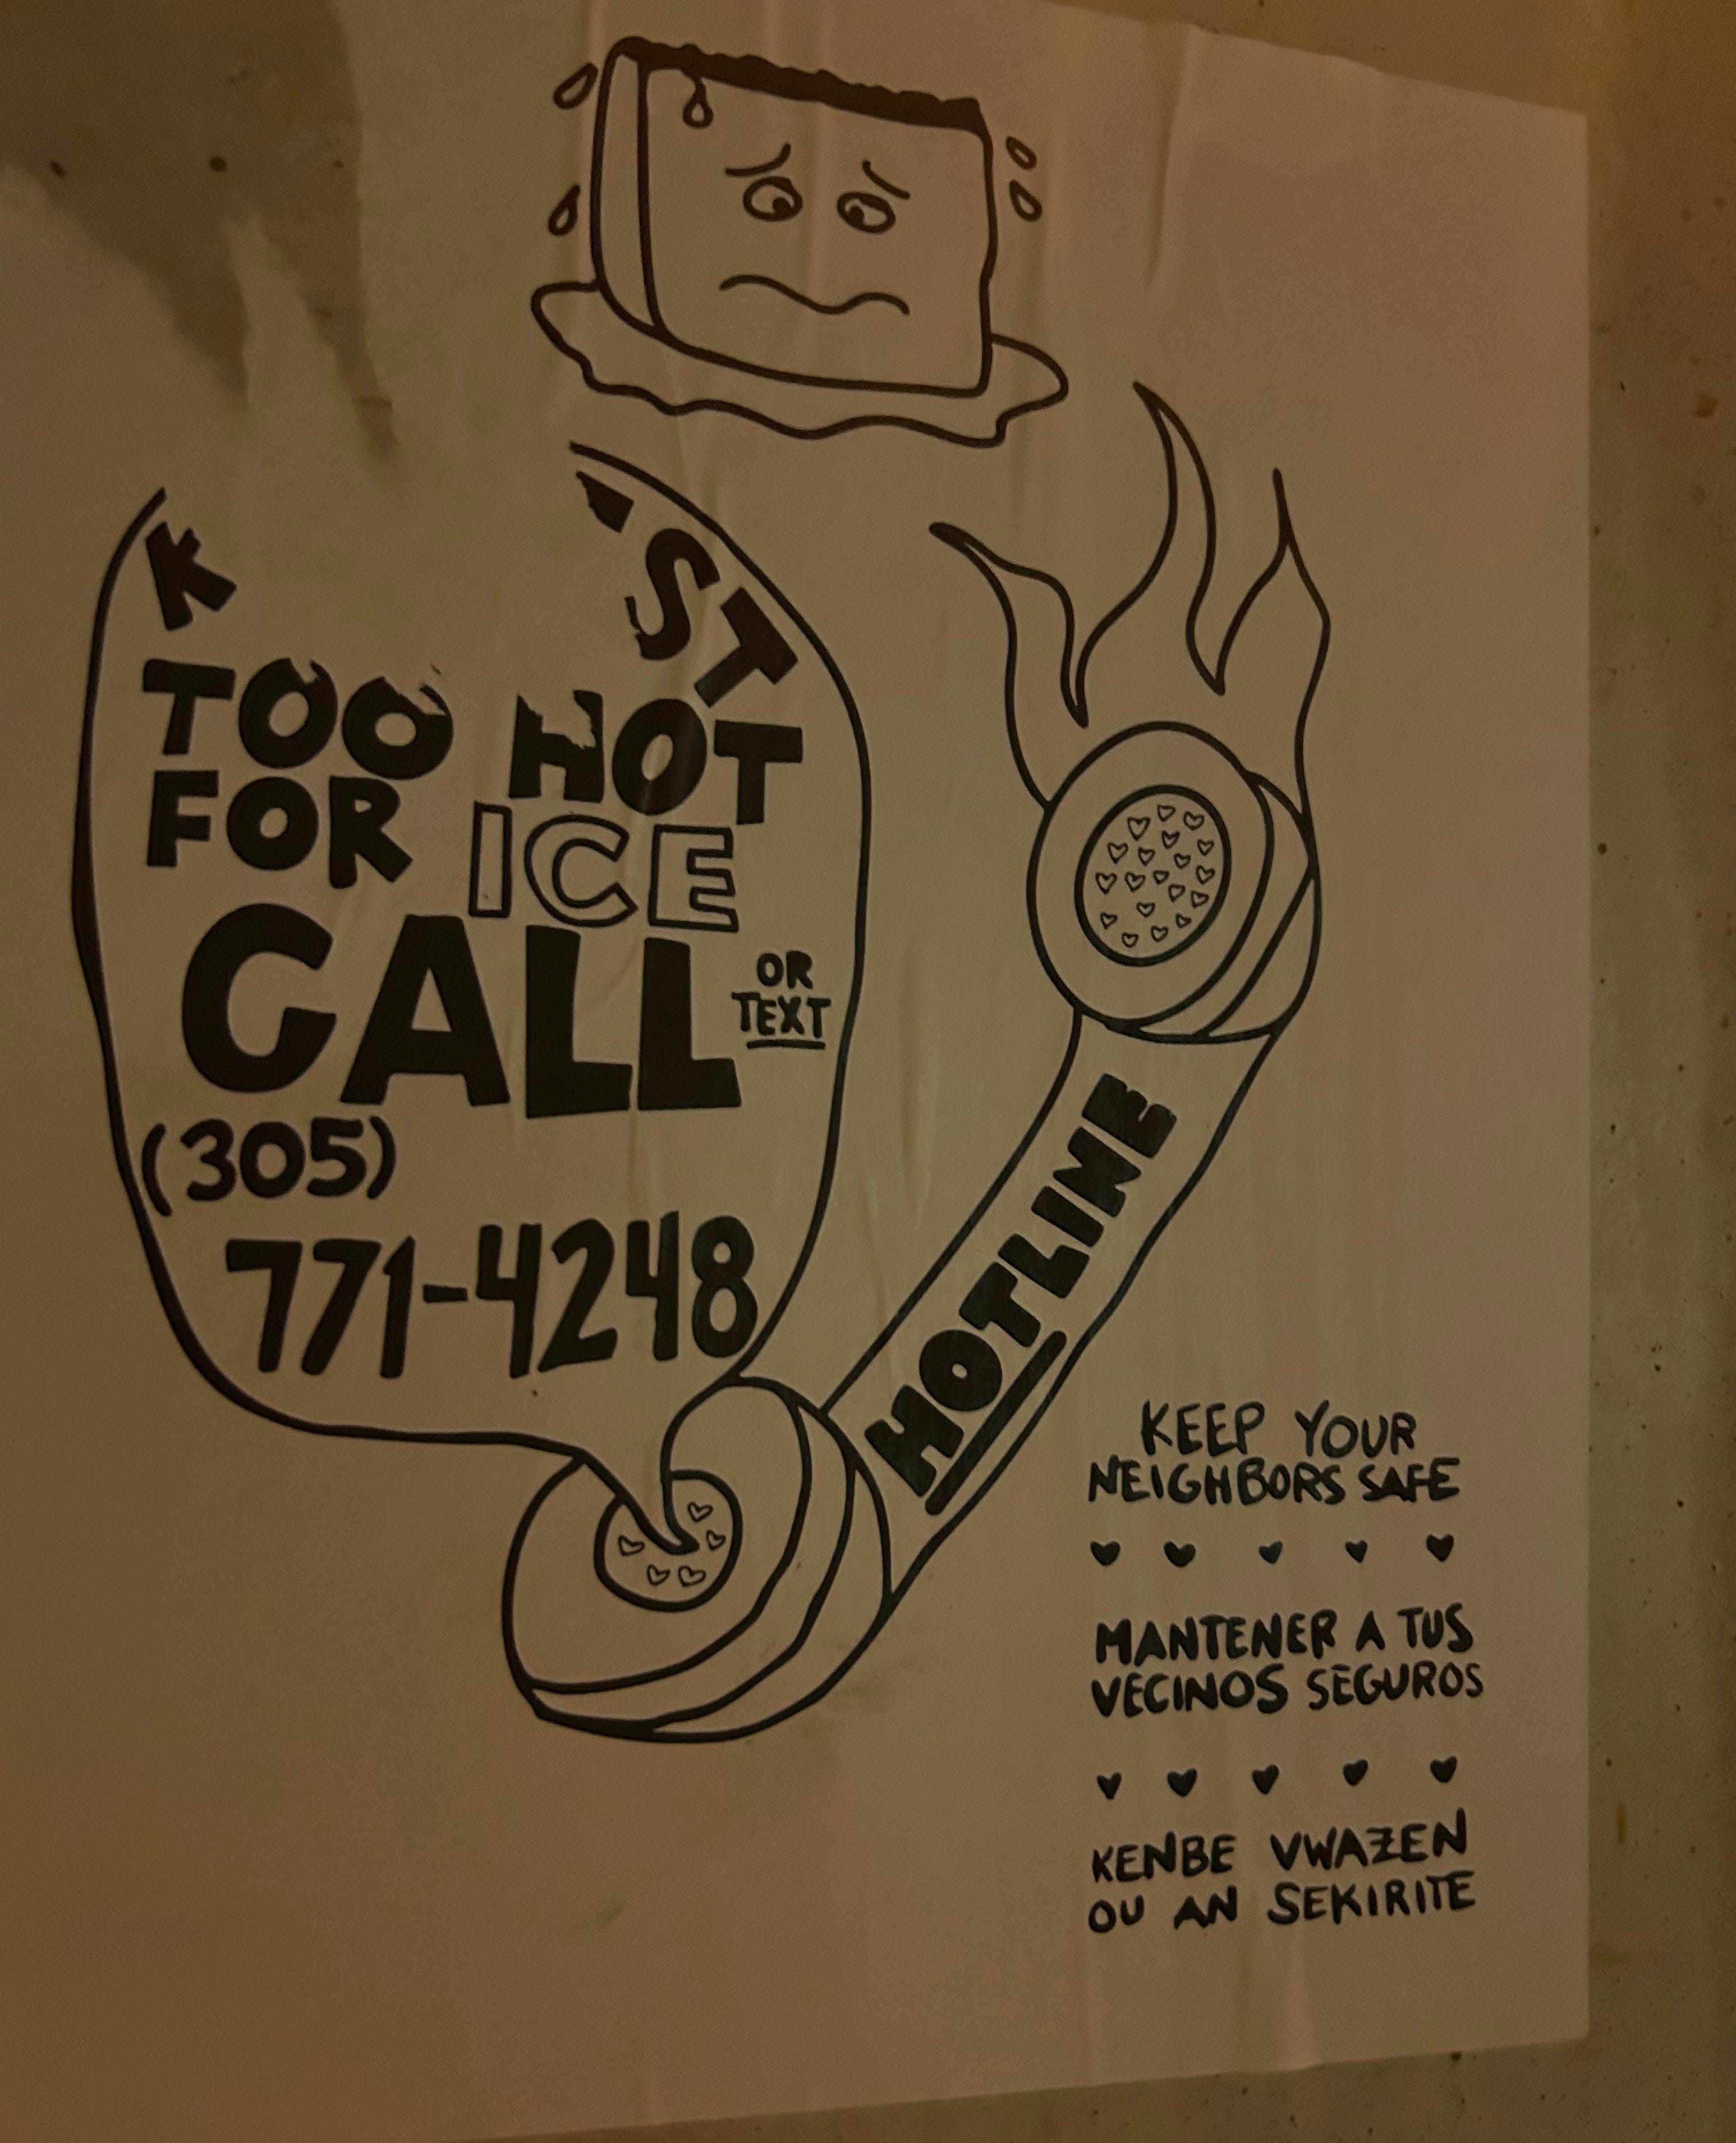 K
ST
TOO HOT
FOR ICE
CALL OR TEXT
(305)
771-4248
HOTLINE
KEEP YOUR
NEIGHBORS SAFE
MANTENER A TUS
VECINOS SEGUROS
KENBE VWAZEN
OU AN SEKIRITE